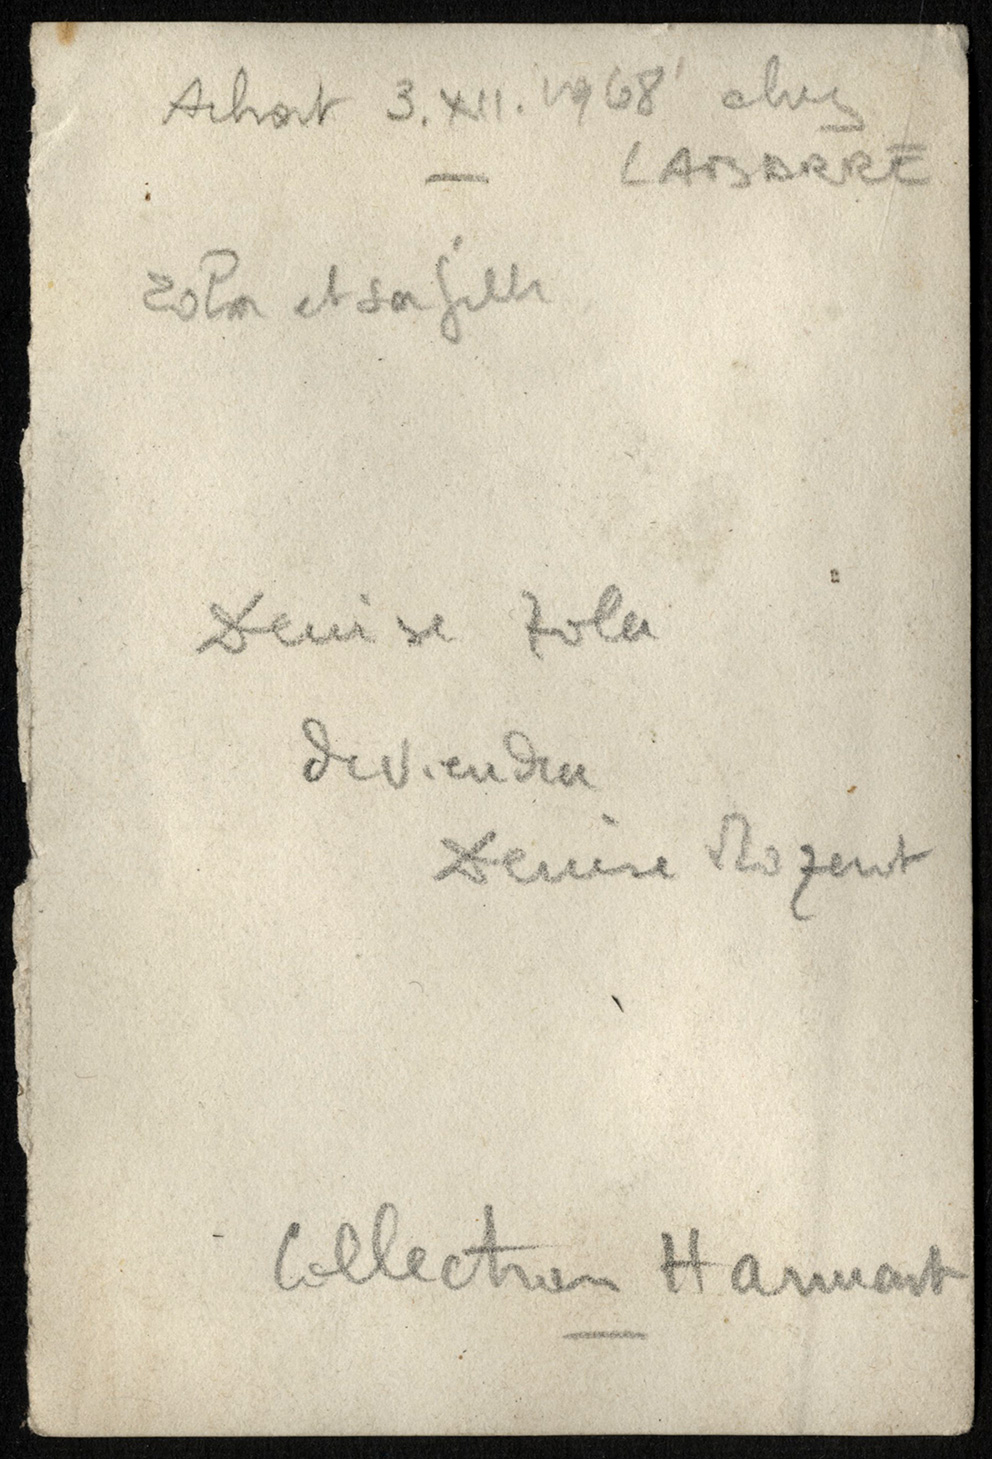 Achat 3.XII.1968 chez
LABARRE
Zola et sa fille
Denise Zola
deviendra
Denise Rozent
Collection Harmant